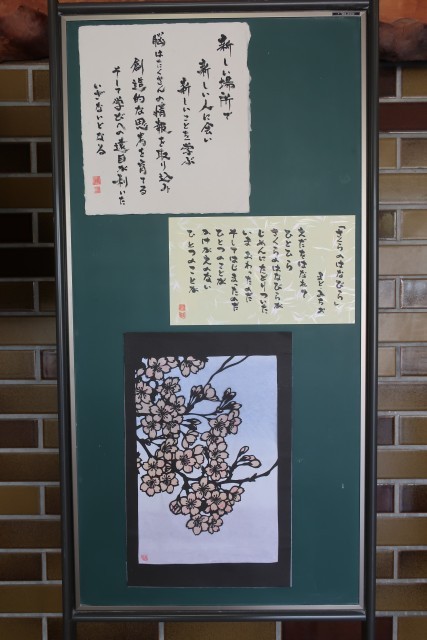 新しい場所で
新しい人に会い
新しいことを学ぶ
脳はたくさんの情報を取り込み
創造的な思考を育てる
そして学びへの適した
いざないとなる
「さくらのはなびら」
まど みちお
えだをはなれて
ひとひら
さくらのはなびらが
じめんにたどりついた
いま おわったのだ
そしてはじまったのだ
ひとつのことが
さくらにとって
かけがえのない
ひとつのことが